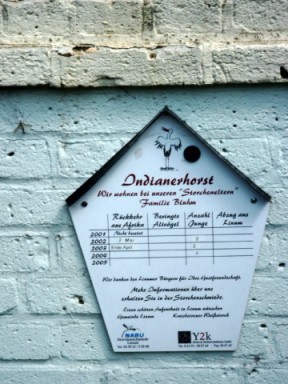 Indianerhorst
Wir wohnen bei unseren "Storcheneltern"
Familie Bluhm
Rückkehr Beringte Anzahl Abzug aus
aus Afrika Altvögel Junge Linum
2001 Nicht besetzt
2002 7. Mai
2003 Ende April
2004
2005
Wir danken den Linumer Bürgern für Ihre Gastfreundschaft.
Mehr Informationen über uns
erhalten Sie in der Storchenschmiede.
Einen schönen Aufenthalt in Linum wünschen
Gemeinde Linum
NABU
Y2k